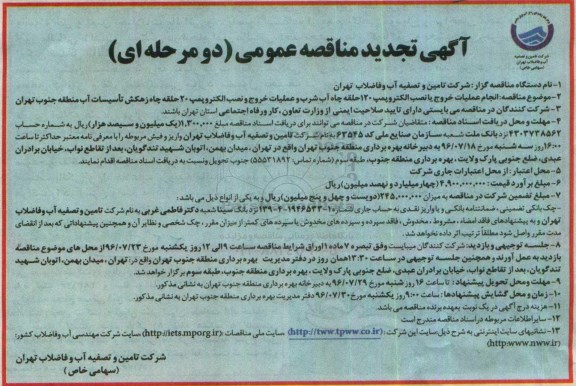 شرکت تامین و تصفیه
آب و فاضلاب تهران
(سهامی خاص)
آگهی تجدید مناقصه عمومی (دو مرحله ای)
۱-نام دستگاه مناقصه گزار: شرکت تامین و تصفیه آب و فاضلاب تهران
۲-موضوع مناقصه: انجام عملیات خروج یا نصب الکتروپمپ ۱۲۰ حلقه چاه آب شرب و عملیات خروج و نصب الکتروپمپ ۲۰ حلقه چاه زهکش تأسیسات آب منطقه جنوب تهران
۳-شرکت کنندگان در مناقصه می بایستی دارای تایید صلاحیت ایمنی از وزارت تعاون ،کار و رفاه اجتماعی استان تهران باشند.
۴- مهلت و محل دریافت اسناد مناقصه: متقاضیان شرکت در مناقصه می توانند برای دریافت اسناد مناقصه مبلغ ۱,۳۰۰,۰۰۰ریال(یک میلیون و سیصد هزار)ریال به شماره حساب
۴۳۰۳۷۳۸۵۶۲ نزد بانک ملت شعبه سازمان صنایع ملی کد ۶۳۵۴۵ به نام شرکت تامین و تصفیه آب و فاضلاب تهران واریز و فیش مربوطه را با معرفی نامه معتبر حداکثر تا ساعت
۱۶:۰۰ روز سه شنبه مورخ ۹۶/۰۷/۱۸ به دبیرخانه بهره برداری منطقه جنوب تهران واقع در تهران ، میدان بهمن، اتوبان شهید تندگویان، بعد از تقاطع نواب، خیابان برادران
عبدی، ضلع جنوبی پارک ولایت ، بهره برداری منطقه جنوب، طبقه سوم (شماره تماس: ۵۵۵۳۱۸۹۲) جنوب تحویل ونسبت به دریافت اسناد مناقصه اقدام نمایند.
۵-محل اعتبار: از محل اعتبارات جاری شرکت
۶-مبلغ برآورد قیمت: ۴,۹۰۰,۰۰۰,۰۰۰ (چهار میلیارد و نهصد میلیون)ریال
۷-مبلغ تضمین شرکت در مناقصه به میزان ۲۴۵,۰۰۰,۰۰۰ (دویست و چهل و پنج میلیون)ریال و به یکی از انواع ذیل می باشد:
-چک بانکی تضمینی ، ضمانتنامه بانکی و یا واریز نقدی به حساب جاری شماره ۱۰-۱۹۴۶۵۳۳-۴-۱۳۹ نزد بانک سینا شعبه دکتر فاطمی غربی به نام شرکت تامین و تصفیه آب و فاضلاب
تهران و به پیشنهادهای فاقد امضاء ، مشروط ، مخدوش ، فاقد سپرده و سپرده های مخدوش یا سپرده های کمتر از میزان مقرر، چک شخصی و نظایر آن و همچنین پیشنهاداتی که بعد از انقضای
مدت مقرر واصل شود مطلقاً ترتیب اثر داده نخواهد شد.
۸- جلسه توجیهی و بازدید: شرکت کنندگان میبایست وفق تبصره ۷ ماده ۱ اوراق شرایط مناقصه ساعت ۹ الی ۱۲ روز یکشنبه مورخ ۹۶/۰۷/۲۳ از محل های موضوع مناقصه
بازدید به عمل آورند و همچنین جلسه توجیهی در ساعت ۱۳:۳۰ همان روز در دفتر مدیریت بهره برداری منطقه جنوب تهران واقع در : تهران ، میدان بهمن، اتوبان شهید
تندگویان، بعد از تقاطع نواب، خیابان برادران عبدی، ضلع جنوبی پارک ولایت ، بهره برداری منطقه جنوب، طبقه سوم برگزار خواهد شد.
۹- مهلت و محل تحویل پیشنهاد: تا ساعت ۱۶ روز شنبه مورخ ۹۶/۰۷/۲۹ به دبیرخانه بهره برداری منطقه جنوب تهران به نشانی مذکور.
۱۰-زمان و محل گشایش پیشنهادها: ساعت ۹:۰۰ روز یکشنبه مورخ ۹۶/۰۷/۳۰ دفتر مدیریت بهره برداری منطقه جنوب تهران به نشانی مذکور.
۱۱- هزینه درج آگهی در یک نوبت بعهده برنده مناقصه می باشد.
۱۲- سایر اطلاعات مربوطه در اسناد مناقصه مندرج است
۱۳- نشانیهای سایت اینترنتی به شرح ذیل: سایت این شرکت : (http://tww.tpww.co.ir) سایت ملی مناقصات :(http://iets.mporg.ir) سایت شرکت مهندسی آب و فاضلاب کشور:
(http:www.nww.ir)
شرکت تامین و تصفیه آب و فاضلاب تهران
(سهامی خاص)